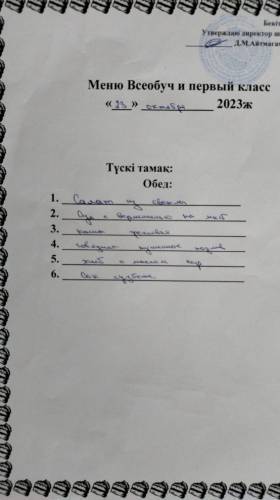 Бекіт
Утверждаю директор ш
Д.М.Айтмаган
Меню Всеобуч и первый класс
«23» октября 2023ж
Түскі тамақ:
Обед:
1. Салат из свеклы
2. Суп с вермишелью на
3. каша гречневая
4. говядина
5. хлеб с маслом сыр
6. Сок